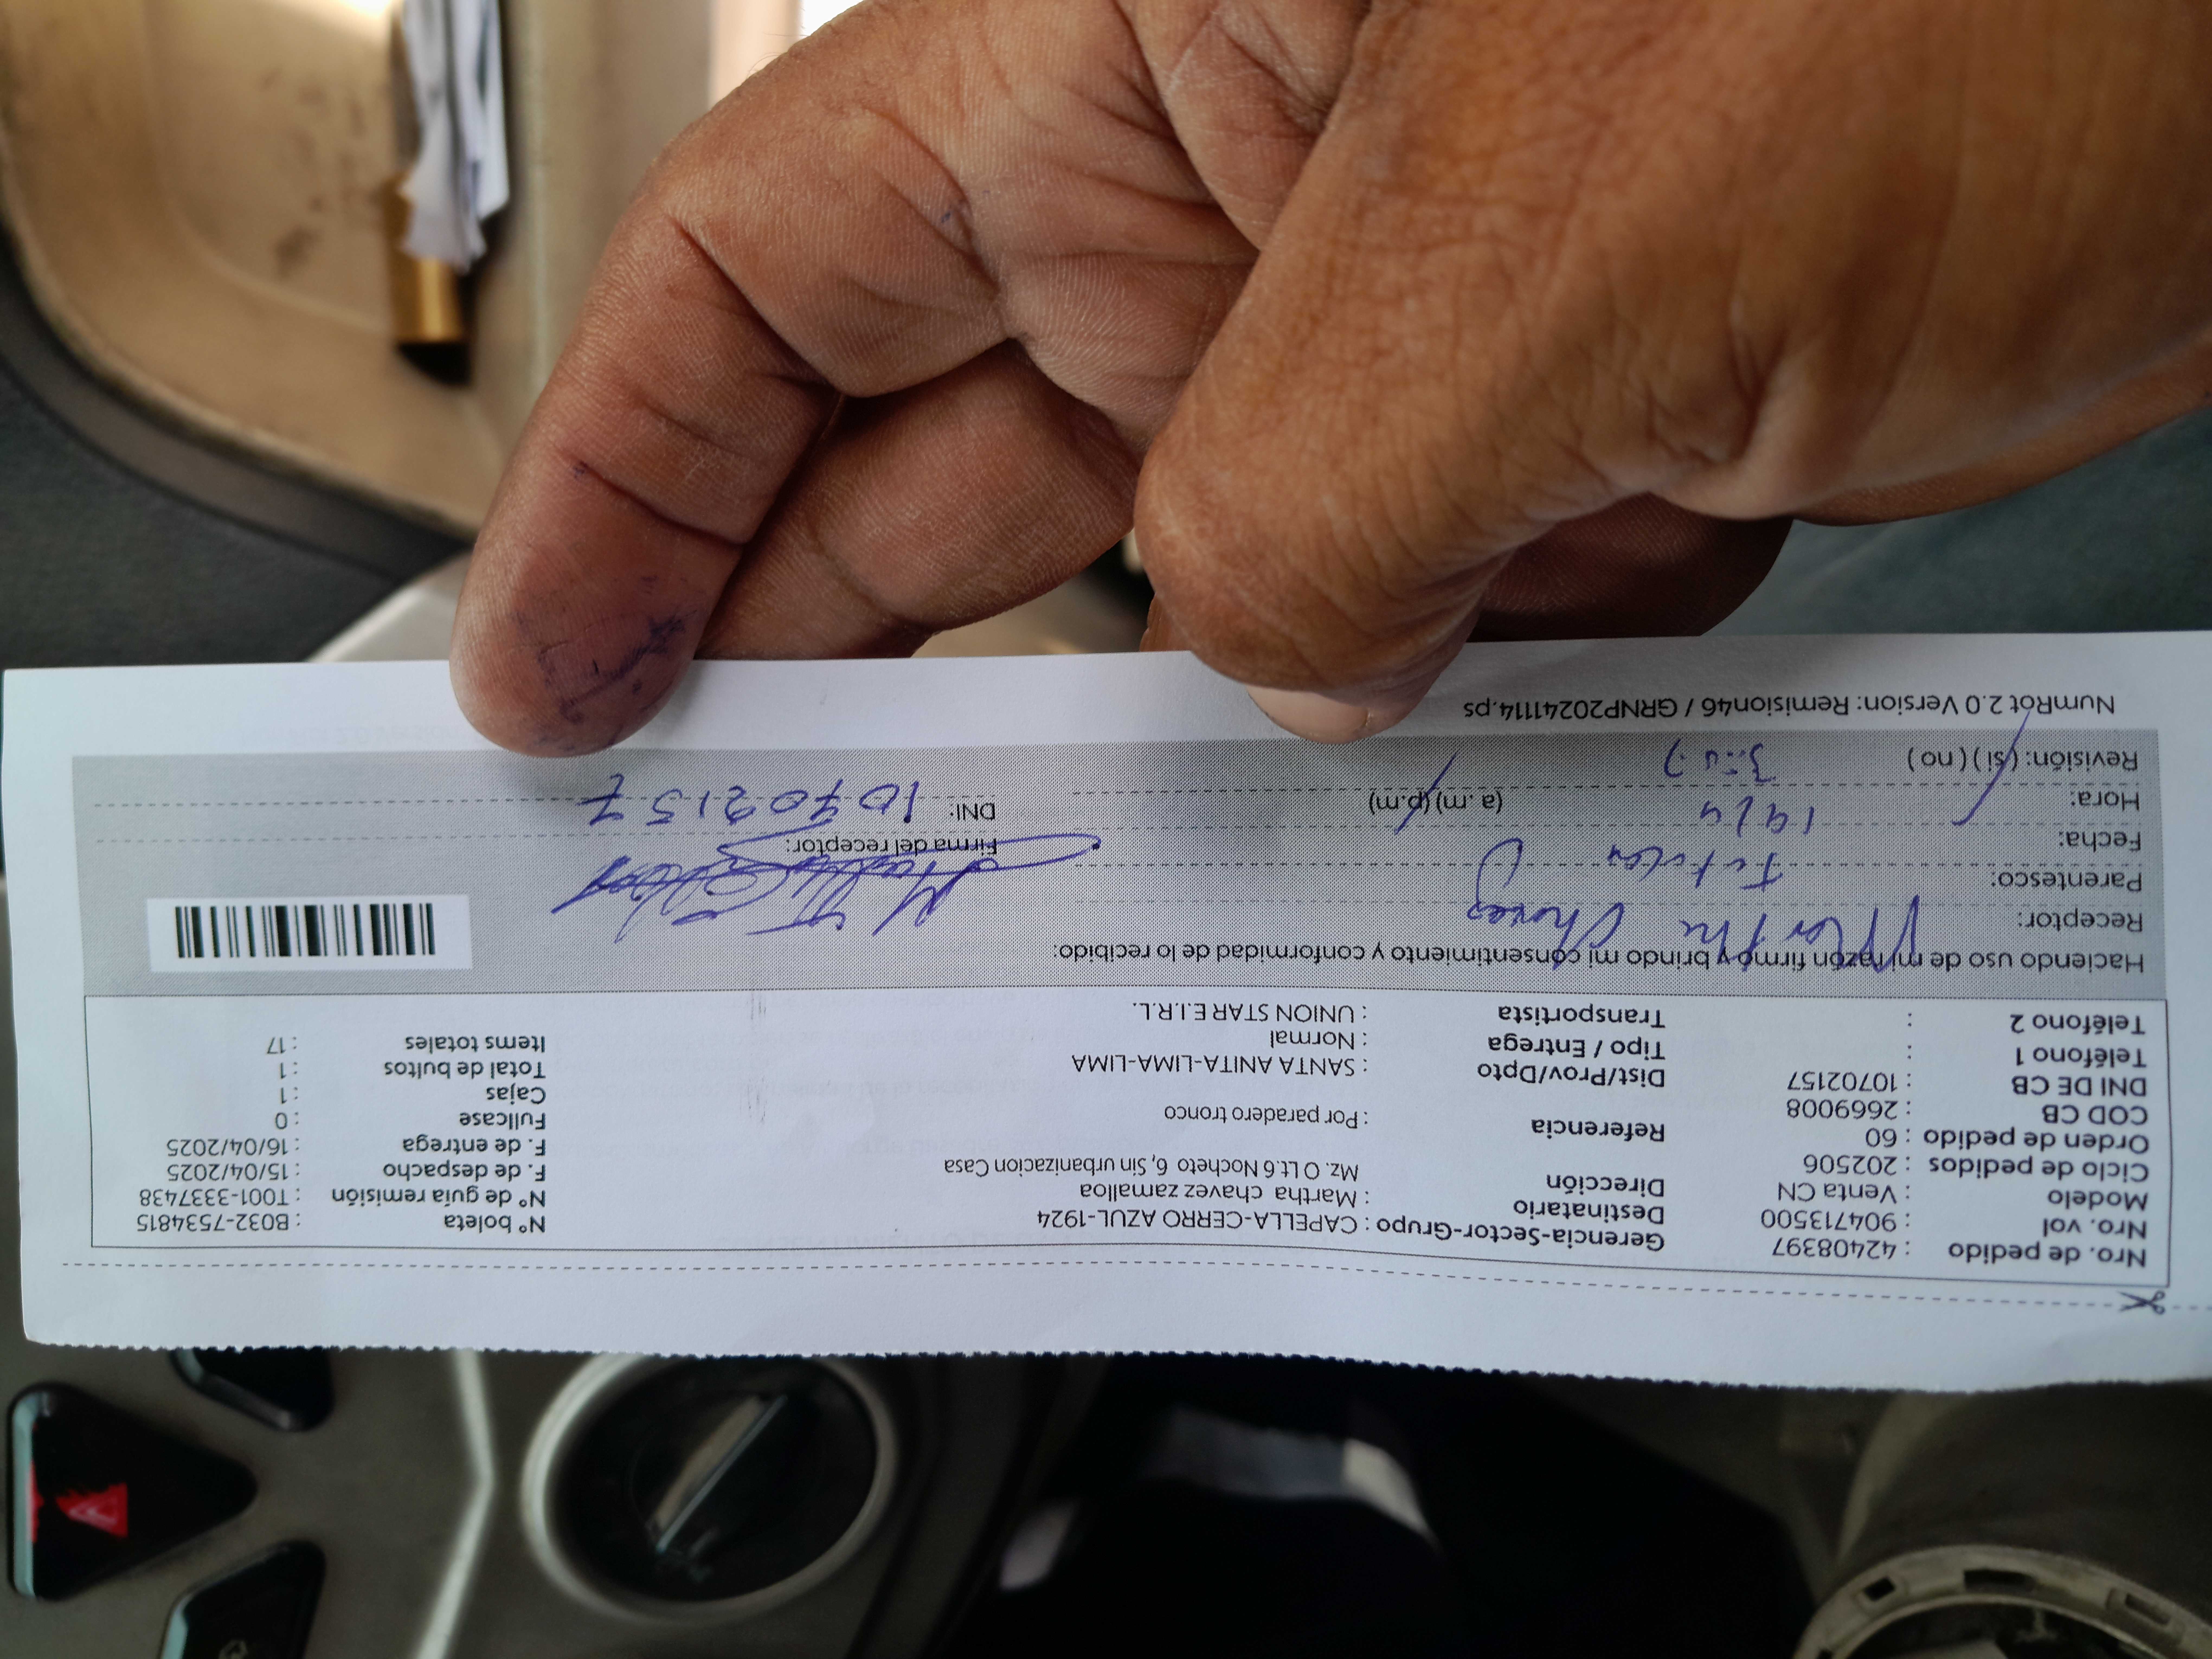 Nro. de pedido : 42408397
Nro. vol : 904713500
Modelo : Venta CN
Ciclo de pedidos : 202506
Orden de pedido : 60
COD CB : 2669008
DNI DE CB : 10702157
Teléfono 1 :
Teléfono 2 :
Gerencia-Sector-Grupo : CAPELLA-CERRO AZUL-1924
Destinatario : Martha chavez zamalloa
Dirección Mz. O Lt.6 Nocheto 6, Sin urbanizacion Casa
Referencia : Por paradero tronco
Dist/Prov/Dpto : SANTA ANITA-LIMA-LIMA
Tipo / Entrega : Normal
Transportista : UNION STAR E.I.R.L.
N° boleta : B032-7534815
N° de guía remisión : T001-3337438
F. de despacho : 15/04/2025
F. de entrega : 16/04/2025
Fullcase : 0
Cajas : 1
Total de bultos : 1
Items totales : 17
Haciendo uso de mi razón firmo y brindo mi consentimiento y conformidad de lo recibido:
Receptor: Martha Chavez
Parentesco: Titular
Fecha:
Hora: (a.m) (p.m)
Revisión: (si) (no)
Firma del receptor:
DNI: 10702157
NumRot 2.0 Version: Remision46 / GRNP20241114.ps